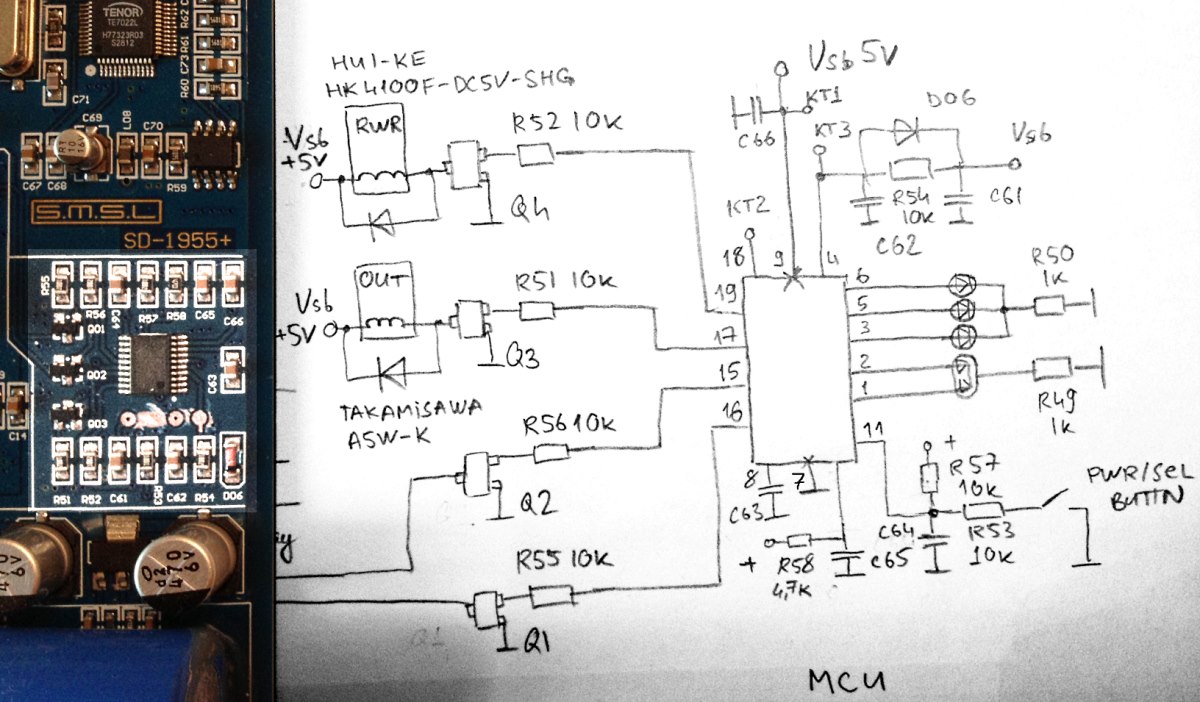 TENOR
TE7022L
H77323R03
S2812
R62
R61
C73
R60
C71
C69
RVT
10
16V
L08
C70
C67
C68
R59
S.M.S.L
SD-1955+
R55
R56
C64
R57
R58
C65
C66
Q01
Q02
C63
Q03
C14
R51
R52
C61
R53
C62
R54
D06
470
6V
470
6V
HUI-KE
HK4100F-DC5V-SHG
Vsb
+5V
RWR
R52 10K
Q4
Vsb
+5V
OUT
R51 10K
Q3
TAKAMISAWA
A5W-K
R56 10K
Q2
R55 10K
Q1
Q1
Vsb 5V
C66
KT1
KT3
D06
Vsb
R54
10K
C61
C62
KT2
18
9
4
19
17
15
16
6
5
3
2
1
11
8
7
R50
1K
R49
1K
C63
+
R58
4,7K
C65
C64
+
R57
10K
R53
10K
PWR/SEL
BUTTN
MCU